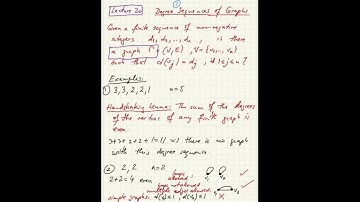 ①
Lecture 20 Degree Sequences of Graphs
Given a finite sequence of non-negative
integers d₁, d₂, ..., dₙ, is there
a graph Γ (V, E), V = {v₁, ... vₙ}
such that d(vⱼ) = dⱼ, ∀ 1≤j≤n ?
Examples:
① 3, 3, 2, 2, 1 n=5
Handshaking Lemma: The sum of the degrees
of the vertices of any finite graph is
even.
3+3+2+2+1=11 ⇒ there is no graph
with this degree sequence
② 2, 2 n=2
2+2=4 even
loops allowed:
loops not allowed
multiple edges allowed:
v₁ v₂
simple graphs: d(v₁)≤1, d(v₂)≤1 ×